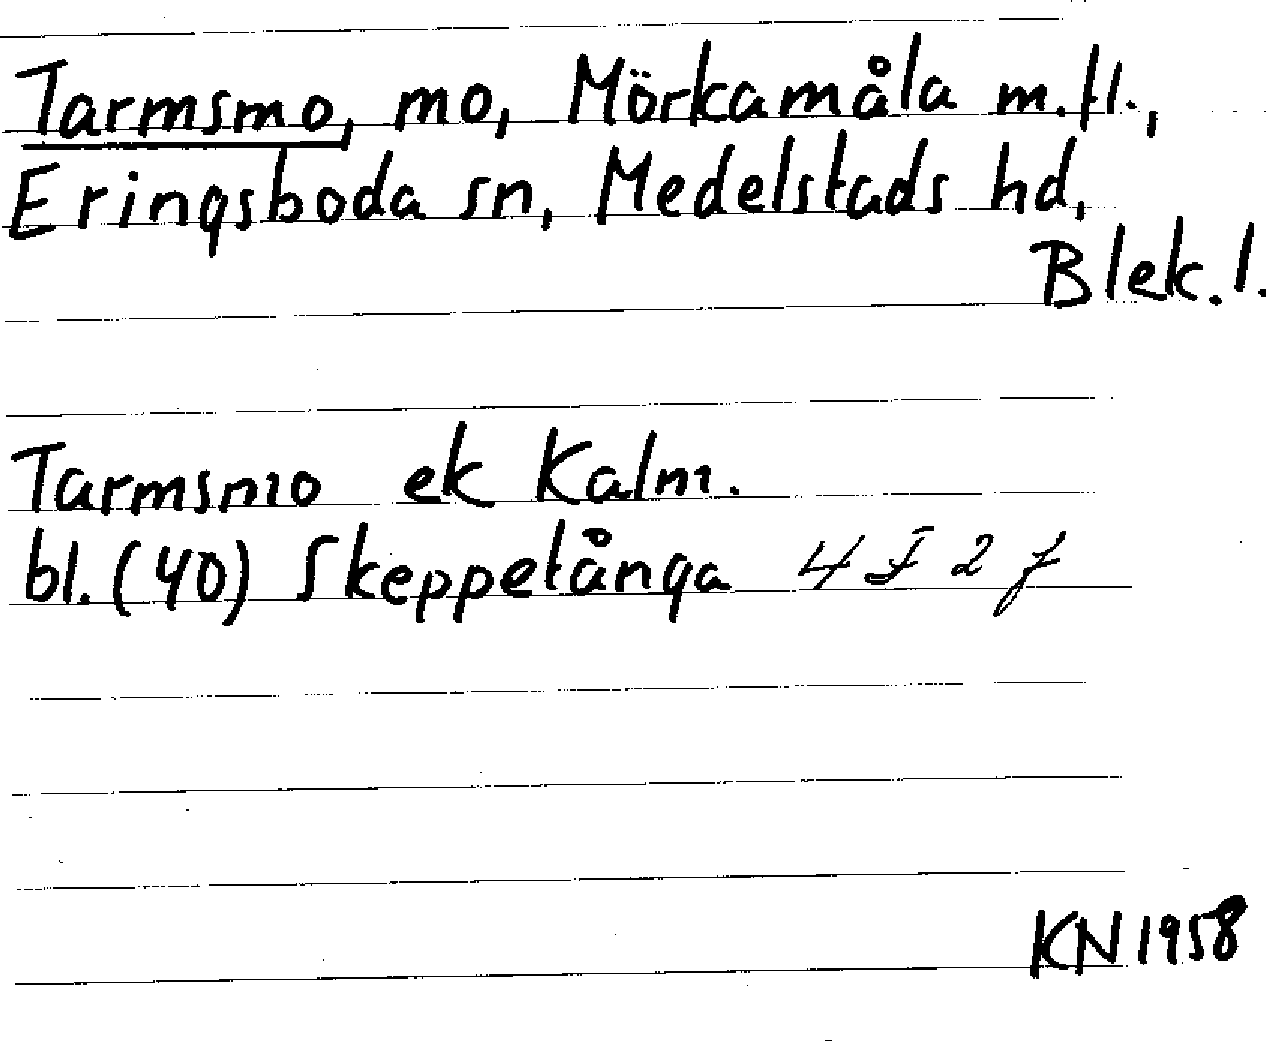 Tarmsmo, mo, Mörkamåla m.fl.,
Eringsboda sn, Medelstads hd,
Blek.l.
Tarmsmo ek Kalm.
bl. (40) Skeppetånga 4F2f
KN 1958